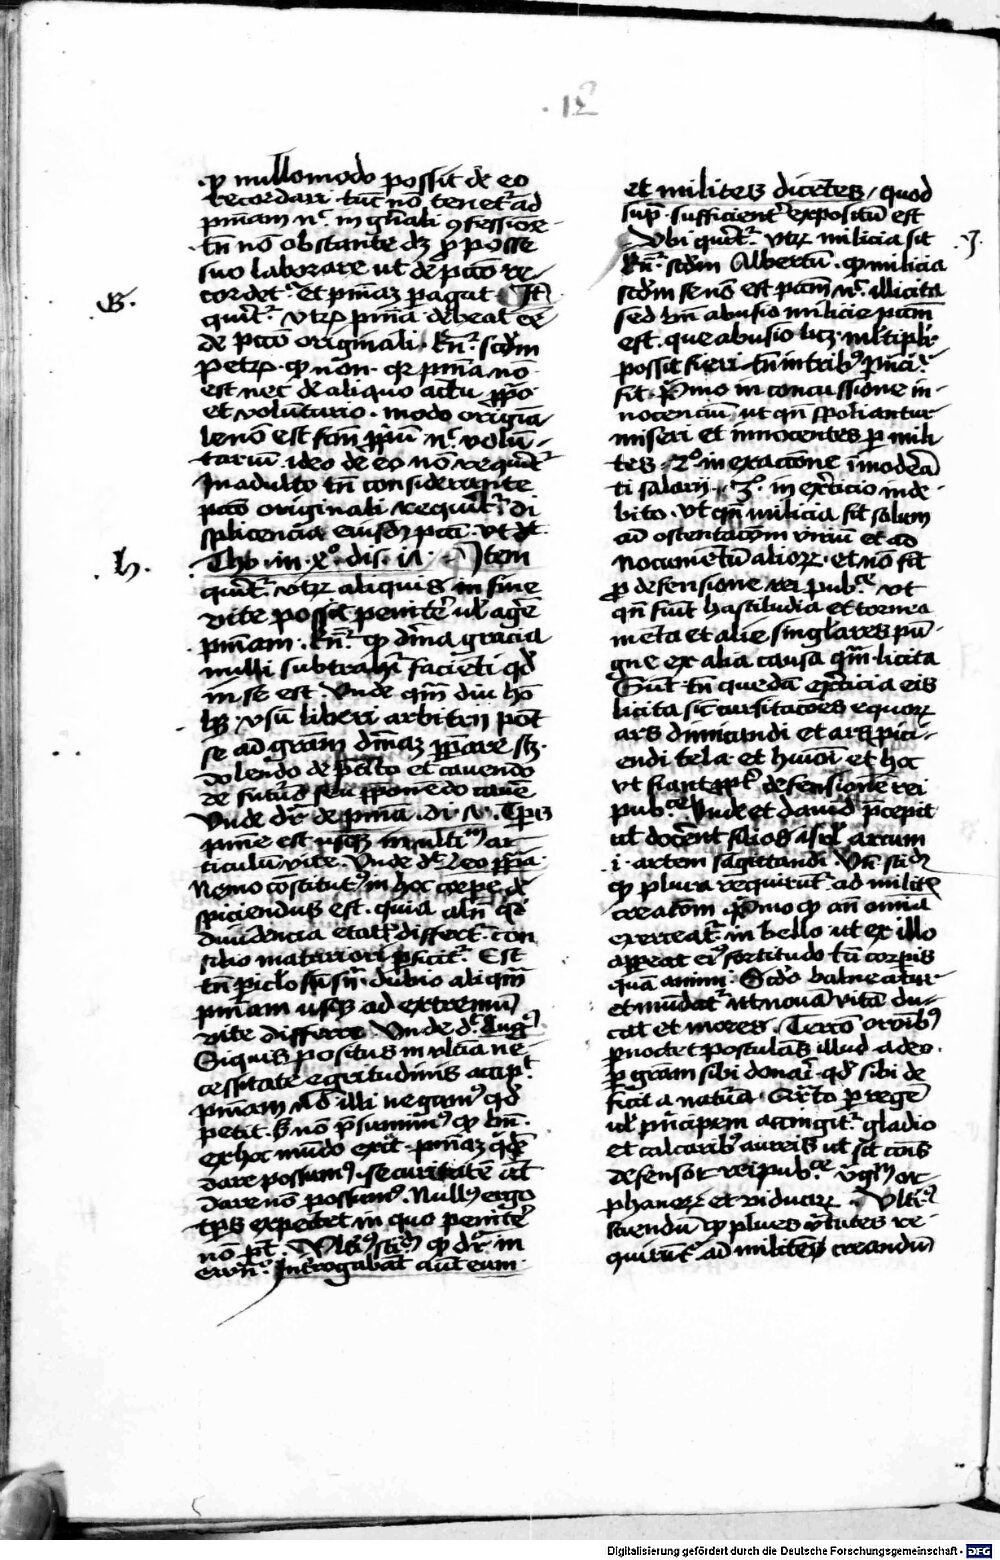 12
ꝙ nullomodo possit de eo
recordari tūc nō tenet᷑ ad
pn̄iam nᶜ in gn̄ali ꝯfessione
tn̄ nō obstante dꝫ ꝓ posse
suo laborare ut de pctō re-
cordet᷑ Et pn̄iaꝫ pagat Itē
G.
querit᷑ vtrꝫ pn̄ia debeat eē
de pctō originali Rn̄᷑ scdm
Petrꝫ ꝙ nōn qꝛ pn̄ia nō
est nec de aliquo actu ꝓpo
et voluntario modo origīa
le nō est fcm̄ ꝓpriū nᶜ volū-
tariū ideo de eo nō requirit᷑
In adulto tn̄ considerante
pctō originali requirit᷑ di
splicencia eiusdꝫ pcti vt dt
Tho in xº dis. Item
h.
querit᷑ vtrꝫ aliquis in fine
vite possit penitē ul agē
pn̄iam Rn̄᷑ ꝙ diīna gracia
nulli subtrahit᷑ faciēti qd̄
in se est Vnde qm̄ diu hō
hꝫ vsū liberi arbitrii pōt
se ad grām diīnaꝫ ꝑpare scꝫ
dolendo de p̄terito et cauendo
de futuro seu ꝓponendo cauē
Vnde dr̄ de penia. di. Tp̄us
pn̄ie est usqꝫ in ultimū ar
ticulū vite Vnde dt Leo pp̄a
Nemo constitutꝰ in hoc corpe de
spiciendus est quia aln̄ qd̄
diffidencia etatis differt con
silio maturiori ꝑficit᷑ Est
tn̄ piclosissimū dubio aliqm̄
pn̄iam usqꝫ ad extremū
vite differre Vnde dt Augꝰ
Si quis positus in ultīa ne
cessitate egritudinis accipit
pn̄iam nō illi negamꝰ qd̄
petit sꝫ nō p̄sumimꝰ ꝙ bn̄
ex hoc mūdo exit pn̄iaꝫ qdē
dare possumꝰ securitatē aūt
dare nō possumꝰ Nullꝰ ergo
tp̄s expectet in quo penitē
nō pt. Vlt᷑ sciꝫ ꝙ dr̄ in
ewn᷑ Introgabāt aūt eum
et milites dicētes / quod
sup sufficient᷑ expositū est
Vbi querit᷑ vtrꝫ milicia sit
J.
Rn̄᷑ scdm Albertū ꝙ milicia
scdm se nō est pctm̄ nᶜ illicita
sed bn̄ abusio milicie pctm̄
est que abusio lꝫ multipli
possit fieri tn̄ in tribꝰ p̄nci᷑
fit Prīmo in concussione in-
nocenciū ut qn̄ spoliantur
miseri et innocentes p mili
tes 2º in exaccione īmoderā
ti salarii 3º in exercicio inde-
bito vt qn̄ milicia fit solum
ad ostentacōem viriū et ad
nocumētū aliorꝫ et nō fit
ꝓ defensione rei pubce vt
qn̄ fiūt hastiludia et tornea
menta et alie singlares pu-
gne ex alia causa qm̄ licita
Sūt tn̄ quedā exercicia eis
licita sic cursitacōes equorꝫ
ars dimicandi et ars piici-
endi tela et hmōi et hoc
vt fiant ꝓpt defensionē rei
pubce Vnde et dauid p̄cepit
ut docerent filios isrl arcum
i. artem sagittandi Vn̄ sciꝫ
ꝙ plura requirūt᷑ ad militē
creatōm Primo ꝙ an̄ omnia
exerceat᷑ in bello ut ex illo
appeat eiꝰ fortitudo tū corpis
quā animi Scdo balneatur
et mūdat᷑ ut nouā vitā du-
cat et mores Tercō orōibꝰ
pnoctet postulās illud a deo
ꝑ grām sibi donari qd̄ sibi de
ficit a natura Quarto p regē
ul p̄ncipem accingit᷑ gladio
et calcaribꝰ aureis ut sit cōis
defensor rei pubce vginū or
phanorꝫ et viduarꝫ Vlt᷑
sciendū ꝙ plures v̄tutes re-
quirūt᷑ ad militem creandū
Digitalisierung gefördert durch die Deutsche Forschungsgemeinschaft - DFG